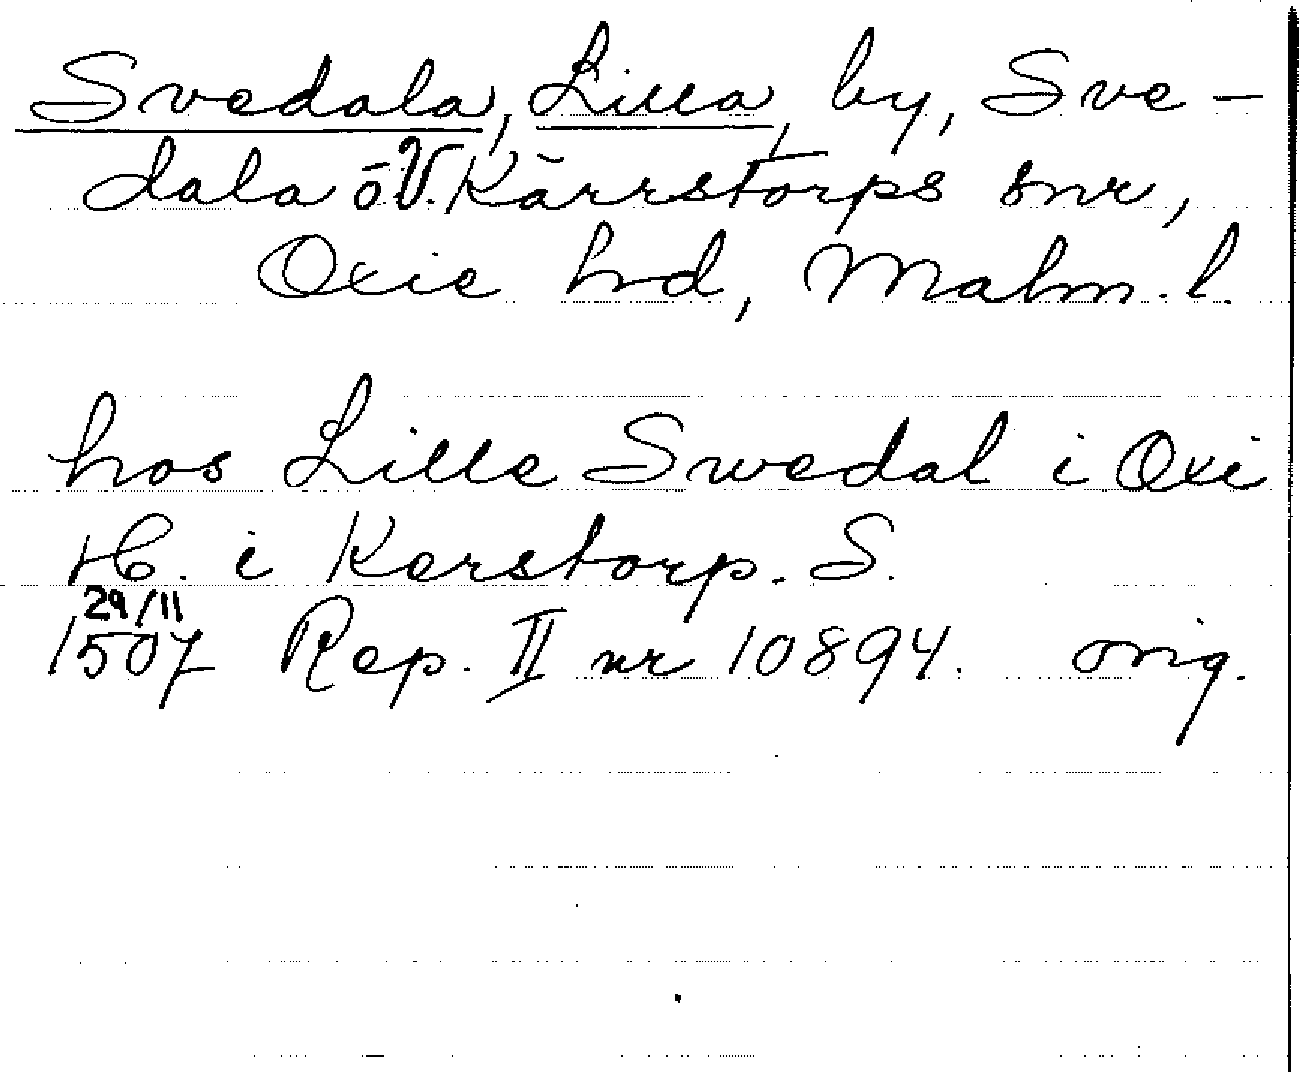 Svedala, Lilla, by, Sve-
dala ō V. Kārrstorps snr,
Oxie hd, Malm. l.
hos Lille Swedal i Oxi
H. i Kerstorp. S.
29/11
1507 Rep. II nr 10894. orig.